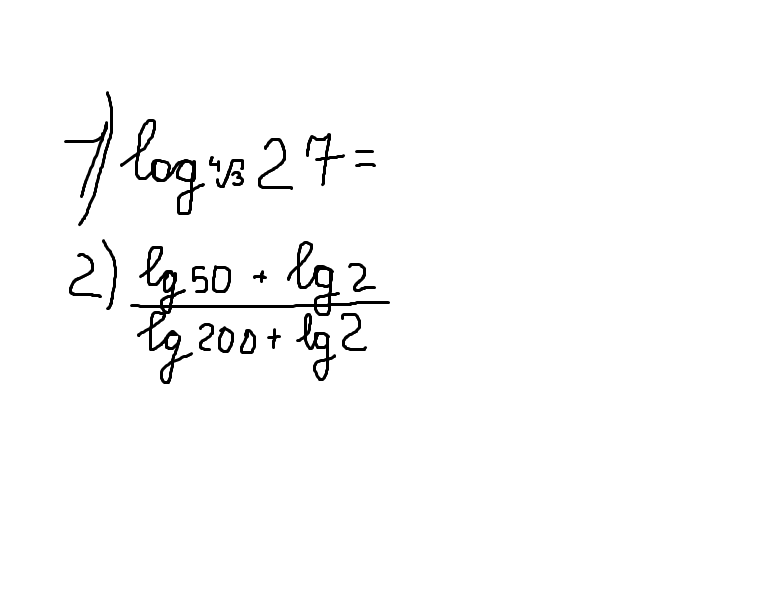 1) log ⁴√3 27 =
2) lg 50 + lg 2
lg 200 + lg 2